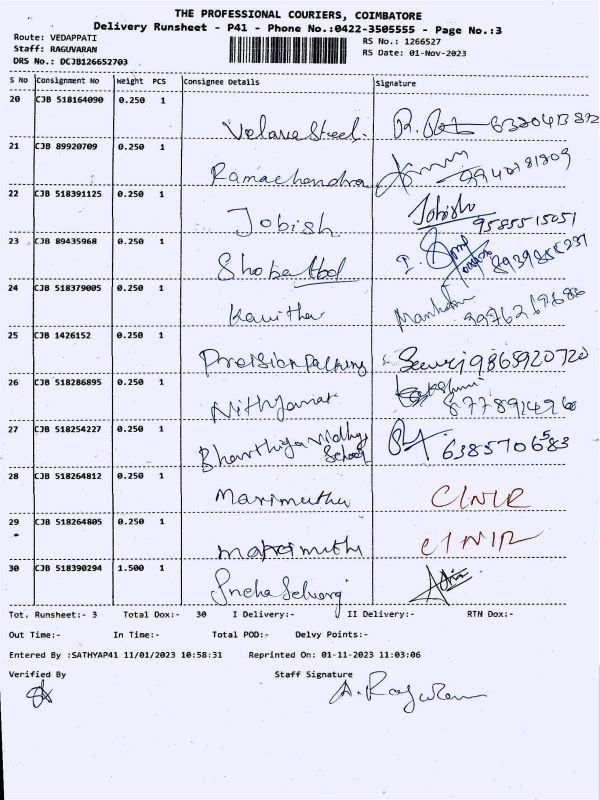 THE PROFESSIONAL COURIERS, COIMBATORE
Delivery Runsheet - P41 - Phone No.:0422-3505555 - Page No.:3
Route: VEDAPPATI
Staff: RAGUVARAN
DRS No.: DCJB126652703
RS No.: 1266527
RS Date: 01-Nov-2023
S No Consignment No Weight PCS Consignee Details Signature
20 CJB 518164090 0.250 1
Velava Steel.
21 CJB 89920709 0.250 1
Ramachandra
22 CJB 518391125 0.250 1
Jobish Jobish 9585515051
23 CJB 89435968 0.250 1
Shoba
24 CJB 518379005 0.250 1
Kavitha
25 CJB 1426152 0.250 1
Precision Packing 9865920720
26 CJB 518286895 0.250 1
27 CJB 518254227 0.250 1
School
28 CJB 518264812 0.250 1
Marimuthu C/N/R
29 CJB 518264805 0.250 1
Marimuthu C/N/R
30 CJB 518390294 1.500 1
Sneha Selvaraj
Tot. Runsheet:- 3 Total Dox:- 30 I Delivery:- II Delivery:- RTN Dox:-
Out Time:- In Time:- Total POD:- Delvy Points:-
Entered By :SATHYAP41 11/01/2023 10:58:31 Reprinted On: 01-11-2023 11:03:06
Verified By Staff Signature